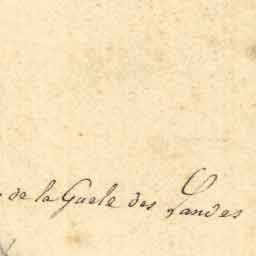 de la Guele des Landes